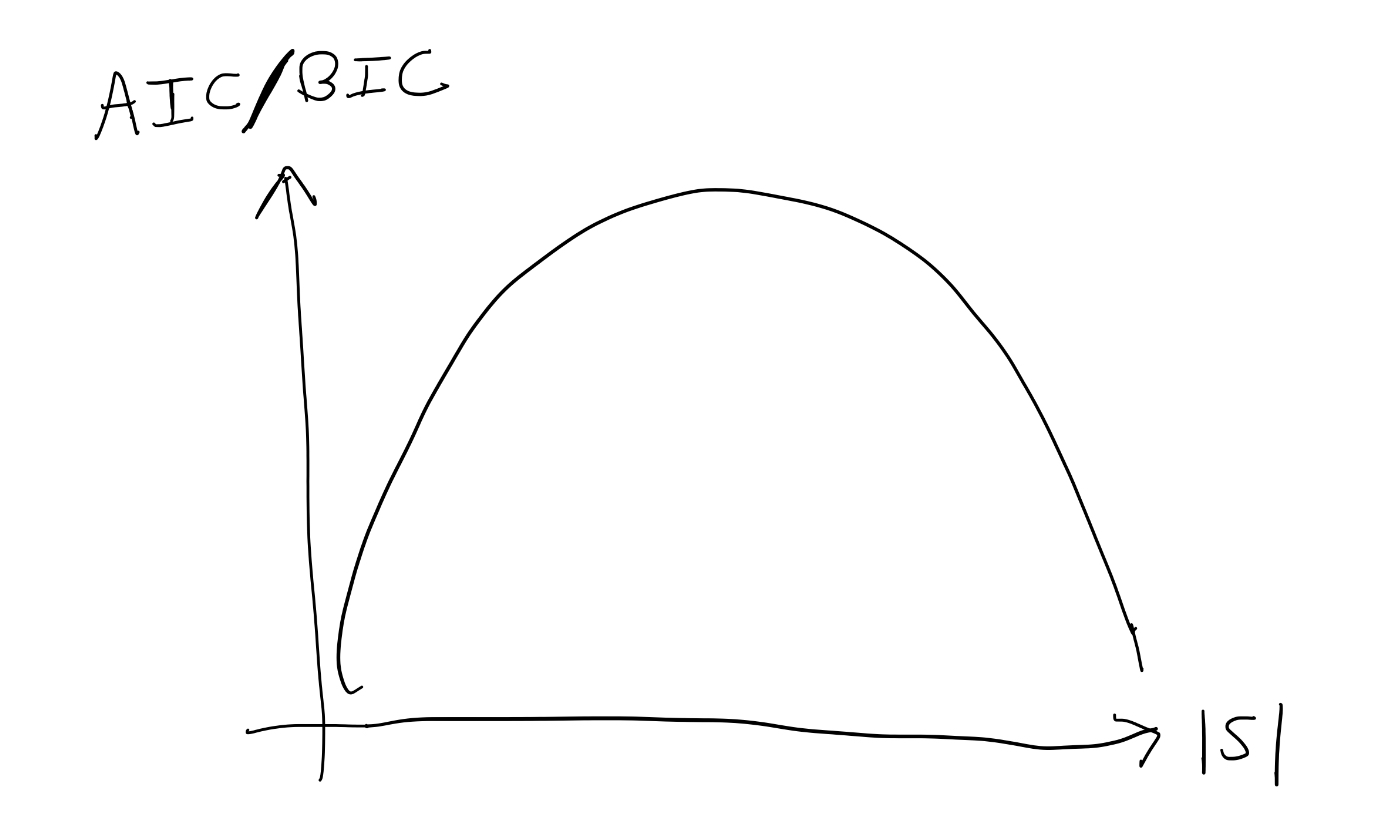 AIC/BIC
|S|